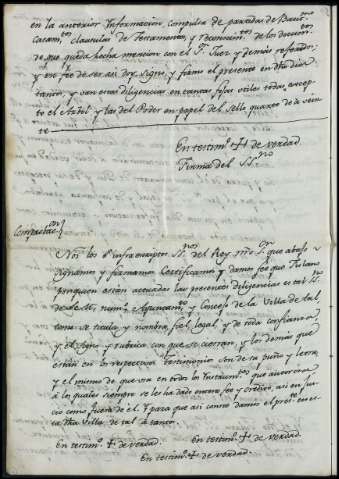 en la anterior Informacion, compulsa de partidas de Baut.mo
Casam.tos clausulas de Testamentos, y reconocim.tos de los docum.tos
de que queda hecha mencion con el S.r Juez, y demás referido;
y en fee de ser asi doy, signo, y firmo el presente en dho dia
tantos, y con estas diligencias en tantas fojas utiles todas, excep
to el Arbol y las del Poder en papel del Sello quarto de a vein
te
En testim.o de verdad
Firma del SS.no
Comprobac.on
Nos los infrascriptos SS.nos del Rey nro S.or que abajo
signamos y firmamos Certificamos y damos fee que Fulano
por quien están actuadas las presentes diligencias es tal SS.no
de S. M. num.o y Ayuntam.to y Concejo de la Villa de tal
como se titula y nombra, fiel, legal y de toda confianza
y el signo y rubrica con que se cierran, y los demás que
están en los respectivos testimonios son de su puño y letra
y el mismo de que usa en todos los Instrum.tos que autoriza
á los quales siempre se les ha dado entera fee y credito, asi en jui
cio como fuera de él. Y para que asi conste damos el pres.te en es
ta dha Villa de tal á tantos.
En testim.o de verdad. En testim.o de verdad.
En testim.o de verdad.